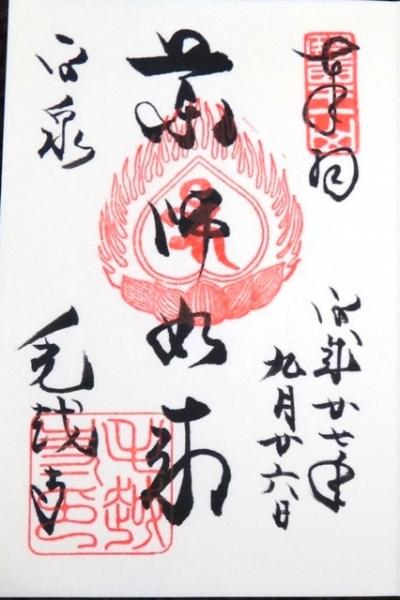 奉拝
醫王山
平成廿七年
九月廿六日
薬師如来
平泉
毛越寺
毛越
寺印